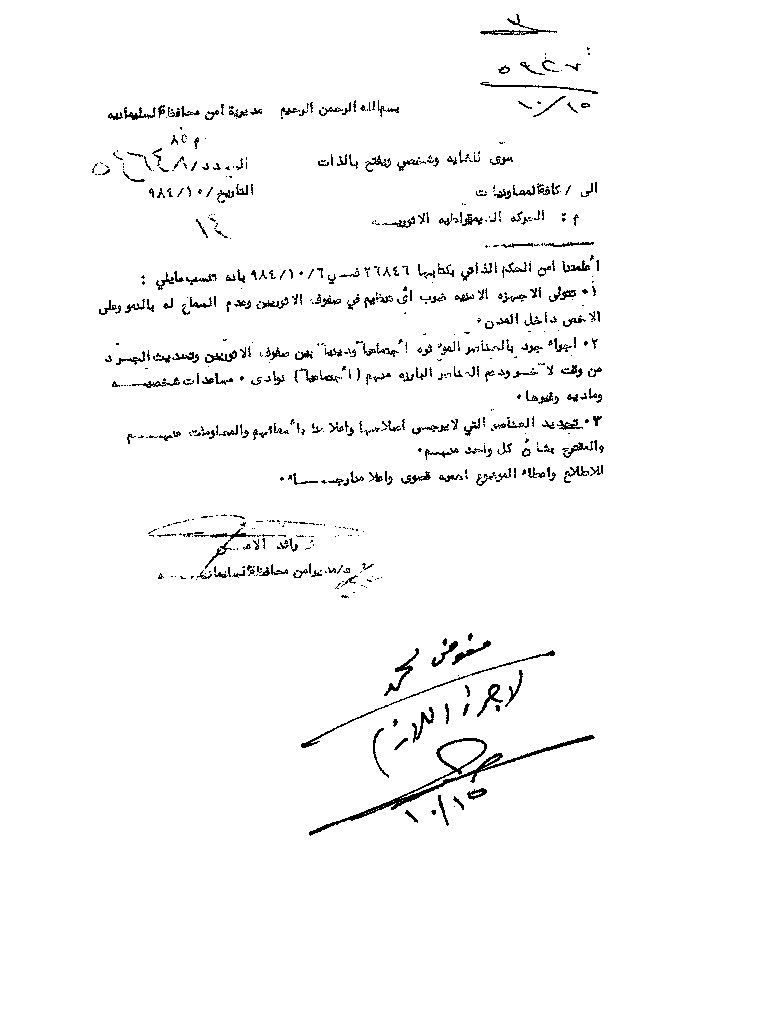 ٥٩٢٧
١٠/١٥
بسم الله الرحمن الرحيم مديرية أمن محافظة السليمانيه
م ٨٥
سري للغايه وشخصي ويفتح بالذات العدد/
الى / كافة المعاونيات التاريخ / ١٠/ ٩٨٤
م : الحركه الديمقراطيه الاثوريـــه ١٤
أعلمتنا امن الحكم الذاتي بكتابها ٢٦٨٤٦ فـي ٩٨٤/١٠/٦ بانه تنسب مايلي :
١٠ تتولى الاجهزه الامنيه ضرب أي تنظيم في صفوف الاثوريين وعدم السماح له بالنمو وعلى
الاخص داخل المدن ٠
٢٠ اجراء جرد بالعناصر المؤثره اجتماعيا ودينيا بين صفوف الاثوريين وتحديث الجـرد
من وقت لآخـر ودعم العناصر البارزه منهم (اجتماعيا) نوادي ٠ مساعدات شخصيـــه
وماديه وغيرها ٠
٣٠ تحديد العناصر التي لايرجـى اصلاحها واعلامنا بأسمائهم والمعلومات عنهـــم
والمقترح بشأن كل واحد منهـم ٠
للاطلاع واعطاء الموضوع اهميه قصوى واعلامنا رجـــــاء ٠
رائد الامـــن
ع/مدير امن محافظة السليمانيـــه
مفوض محمد
لاجراء اللازم
١٠/١٥